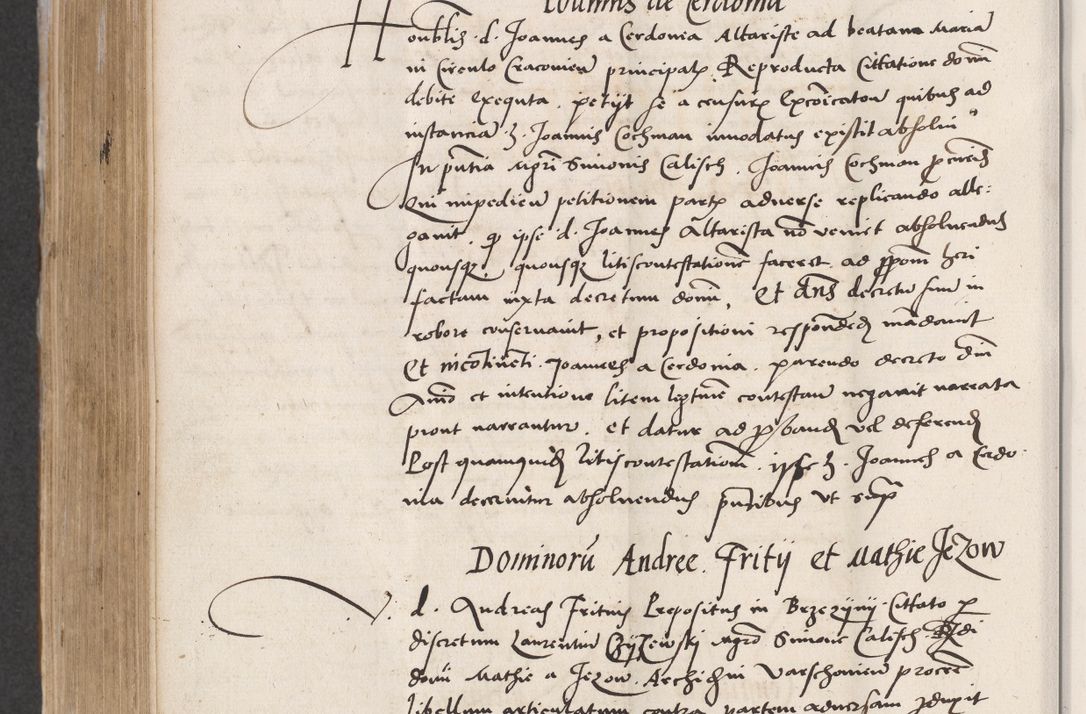 Ioannis de Cerdonia
Honoblis d. Joannes a Cerdonia Altariste ad beatam Mariam
in Circulo Cracovien principalr. Reproducta Cittatione domi
debite exequta, petijt se a censur excoicator quibus ad
instancia Joannis Cochman innodatus existit absolui
In pntia Mgri Simonis Calisch, Joannis Cochman pcuris
Qui impedien petitionem partr adverse replicando alle:
gavit, qp ipse d. Joannes Altarista no veniet absoluendus
quousq, quousq litiscontestatione faceret ad pponi heri
factam iuxta decretum domi, Et dns decretu suu in
robore conservavit, et propositioni respondend madavit
Et incotineti Joannes a Cerdonia parendo decreto dni
Anio et intentione litem leptime contestan negavit narrata
prout narrantur, et datur ad pband vel deferend
Post quamquid litiscontestationi ipse Joannes a Cerdo
nia decernitur absoluendus pntibus ut sup
Dominorū Andree Fritij et Mathie Jezow
V. d. Andreas Fritius Prepositus in Brzezyny Cittato p
discretum Laurentiu mgro Simone Calisch
domi Mathie a Jezow Archidni Varschovien procre
libellum articulatum contra partem adversam pduxit